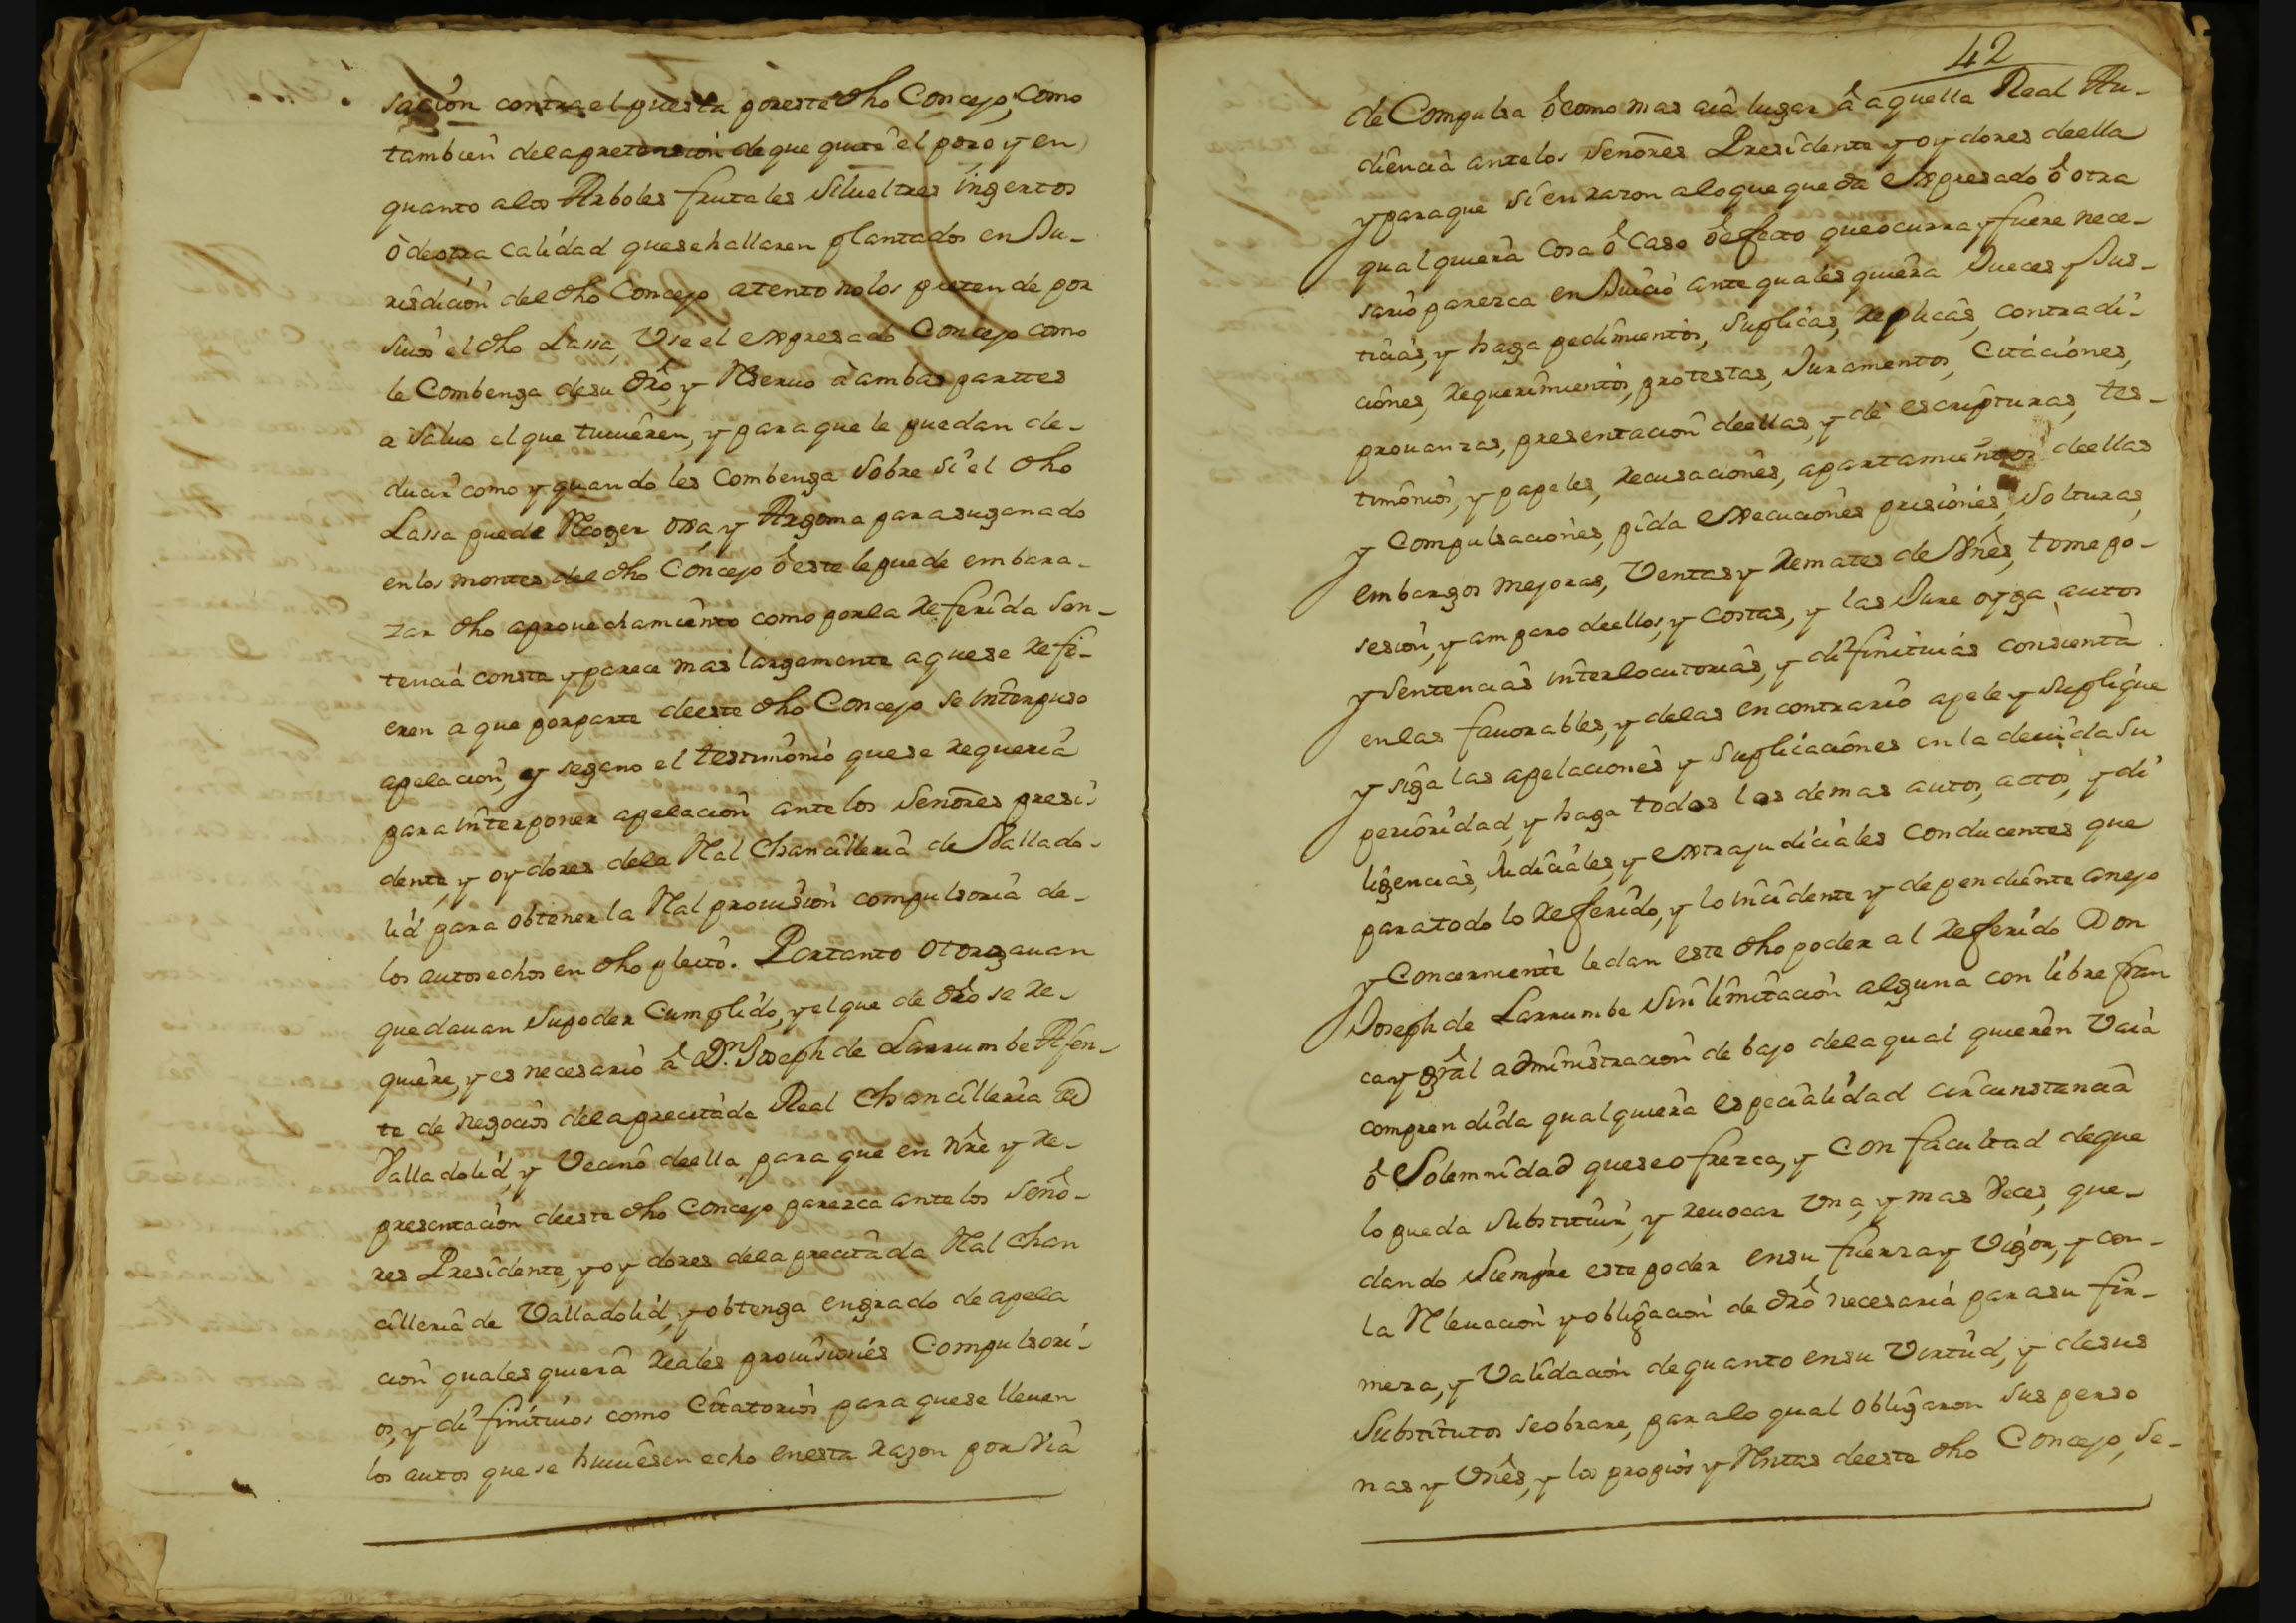 sacion contra el puesta por este dho Concejo, como
tambien dela pretension de que quite el pozo y en
quanto alos Arboles frutales siluestres ingertos
ò de otra calidad que se hallaren plantados en Ju-
risdicion del dho Concejo atento no los pretende por
suios el dho Lassa, Vse el expresado Concejo como
le Combenga de su dro, y Reseruo à ambas parttes
a saluo el que tuuieren, y para que le puedan de-
ducir como y quando les Combenga sobre si el dho
Lassa puede Recoger oxa, y Argoma para su ganado
en los montes del dho Concejo ô este le puede embara-
zar dho aprouechamiento como por la Referida Sen-
tencia consta y parece mas largamente a que se Refi-
eren a que por parte de este dho Concejo se interpuso
apelacion, y se gano el testimonio que se Requeria
para interponer apelacion ante los Señores presi-
dente, y oydores dela Ral Chancilleria de Vallado-
lid para obtener la Ral prouision compulsoria de-
los autos echos en dho pleito. Portanto otorgauan
que dauan su poder Cumplido, y el que de dro se Re-
quiere, y es necesario â Dn. Joseph de Larrumbe Agen-
te de negocios dela precitada Real Chancilleria de
Valladolid, y Vecino de ella, para que en Nre y Re-
presentacion de este dho Concejo parezca ante los Seño-
res Presidente, y oydores dela precitada Ral Chan
cilleria de Valladolid, y obtenga en grado de apela
cion quales quiera Reales prouisiones Compulsori-
os, y difinitiuos como Citatorios para que se lleuen
los autos que se huuiesen echo en esta Razon por Via
42
de Compulsa ô como mas aia lugar â aquella Real Au-
diencia ante los Señores Presidente y oydores de ella
y para que si en razon a lo que queda expresado ô otra
qualquiera cosa ô caso ô efecto que ocurra, y fuere nece-
sario parezca en Juicio ante quales quiera Jueces y Jus-
ticias, y haga pedimientos, suplicas, Replicas, contradi-
ciones, Requerimientos, protestas, Juramentos, Citaciones,
prouanzas, presentacion de ellas, y de escripturas, tes-
timonios, y papeles, Recusaciones, apartamientos de ellas
y Compulsaciones, pida execuciones prisiones, solturas,
embargos mejoras, Ventas y Remates de Vnes, tome po-
sesion, y amparo de ellos, y costas, y las Jure oyga autos
y sentencias interlocutorias, y difinitiuas consienta
en las fauorables, y delas en contrario apele y suplique
y siga las apelaciones y suplicaciones en la deuida su
perioridad, y haga todos los demas autos, actos, y di
ligencias, Judiciales, y extrajudiciales conducentes que
para todo lo Referido, y lo incidente y dependiente anejo
y Concerniente le dan este dho poder al Referido Don
Joseph de Larrumbe sin limitacion alguna con libre fran
ca y gral administracion de bajo dela qual quieren Vaia
comprendida qualquiera especialidad circunstancia
ô Solemnidad que se ofrezca, y con facultad de que
lo pueda substituir, y reuocar Vna, y mas Veces, que-
dando siempre este poder en su fuerza y Vigor, y con-
la Releuacion y obligacion de dro necesaria para su fir-
meza, y Validacion de quanto en su Virtud, y de sus
Substitutos se obrare, para lo qual obligaron sus perso
nas y Vnes, y los propios y Rentas de este dho Concejo, se-